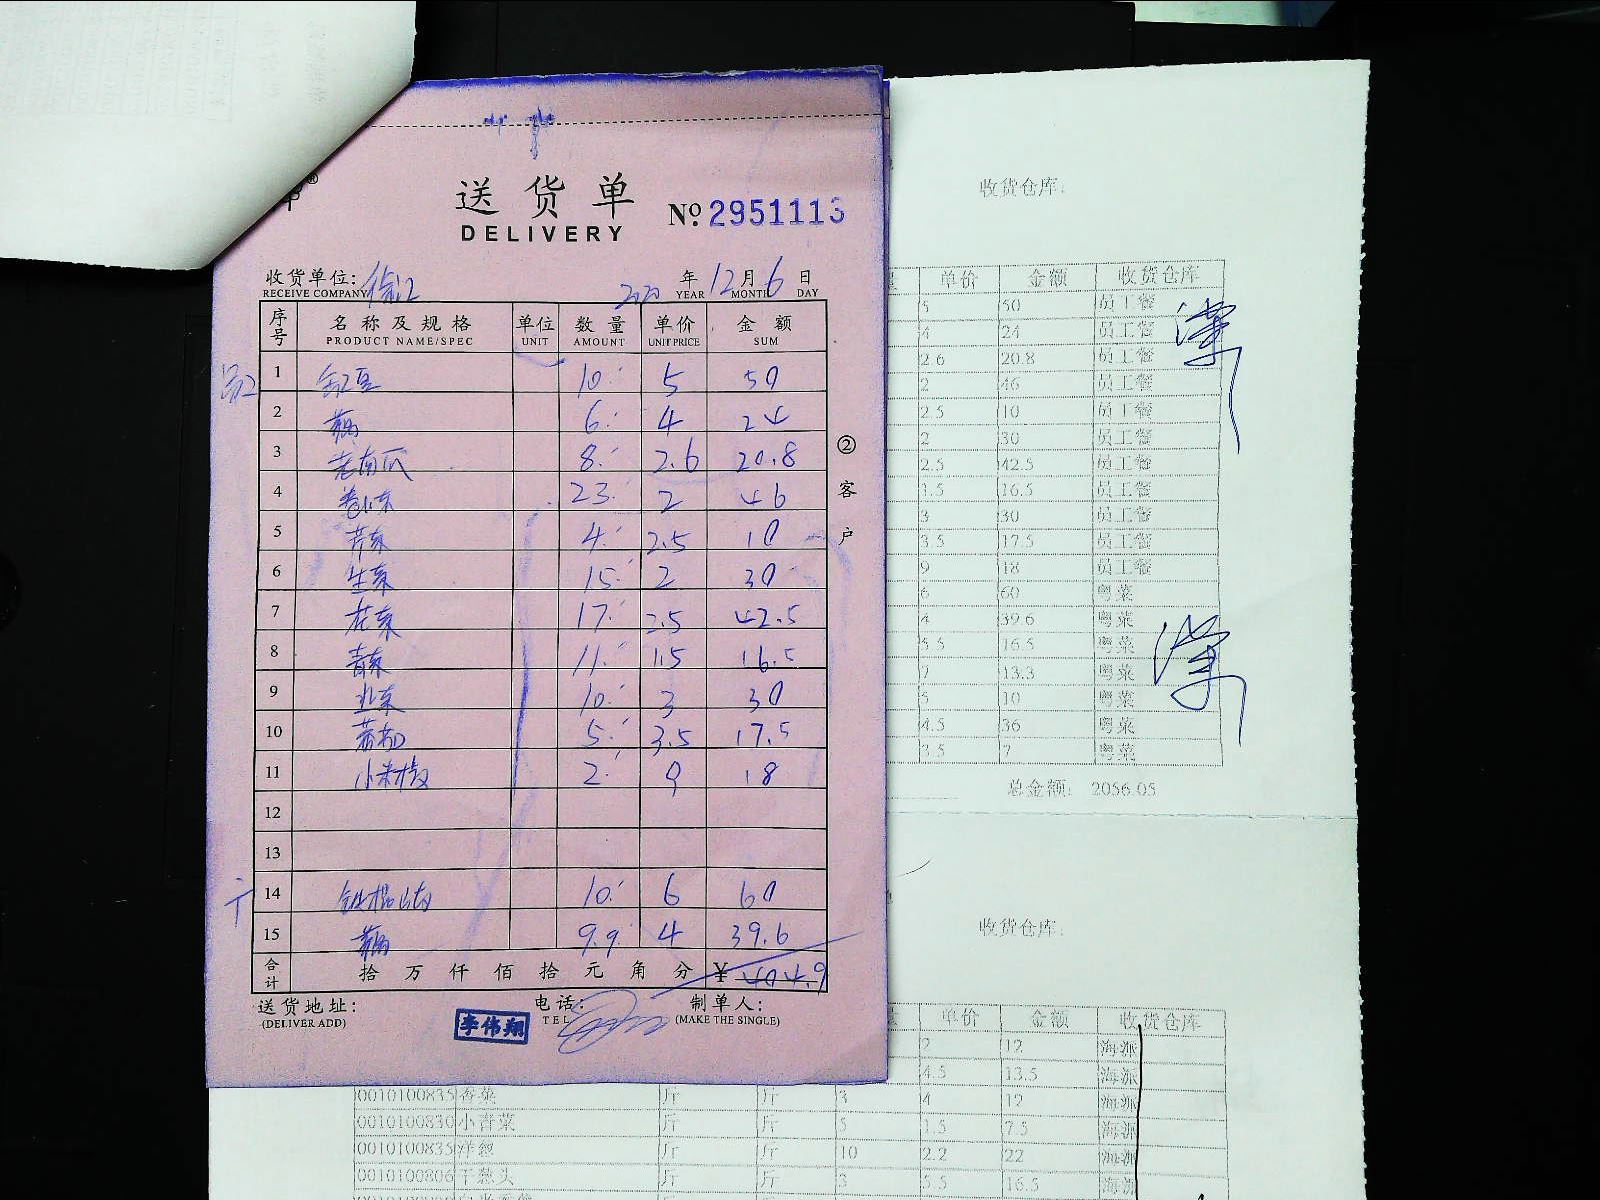 送货单
DELIVERY
№ 2951113
收货单位: 徐汇 2020 年 12 月 6 日
RECEIVE COMPANY YEAR MONTH DAY
序号 名称及规格 单位 数量 单价 金额
PRODUCT NAME/SPEC UNIT AMOUNT UNIT PRICE SUM
1 豇豆 10 5 50
2 6 4 24
3 老南瓜 8 2.6 20.8
4 卷心菜 23 2 46
5 芹菜 4 2.5 10
6 生菜 15 2 30
7 花菜 17 2.5 42.5
8 青菜 11 1.5 16.5
9 韭菜 10 3 30
10 5 3.5 17.5
11 小米椒 2 9 18
12
13
14 铁棍山药 10 6 60
15 9.9 4 39.6
合计 拾 万 仟 佰 拾 元 角 分 ¥ 404.9
送货地址: 电话: 制单人:
(DELIVER ADD) TEL (MAKE THE SINGLE)
李伟翔
②客户
收货仓库:
单价 金额 收货仓库
5 50 员工餐
4 24 员工餐
2.6 20.8 员工餐
2 46 员工餐
2.5 10 员工餐
2 30 员工餐
2.5 42.5 员工餐
1.5 16.5 员工餐
3 30 员工餐
3.5 17.5 员工餐
9 18 员工餐
6 60 粤菜
4 39.6 粤菜
5.5 16.5 粤菜
7 13.3 粤菜
5 10 粤菜
4.5 36 粤菜
3.5 7 粤菜
总金额: 2056.05
收货仓库:
单价 金额 收货仓库
2 12 海派
4.5 13.5 海派
0010100835 香菜 斤 斤 3 4 12 海派
0010100830 小青菜 斤 斤 5 1.5 7.5 海派
0010100835 洋葱 斤 斤 10 2.2 22 海派
0010100806 干葱头 斤 斤 3 5.5 16.5 海派